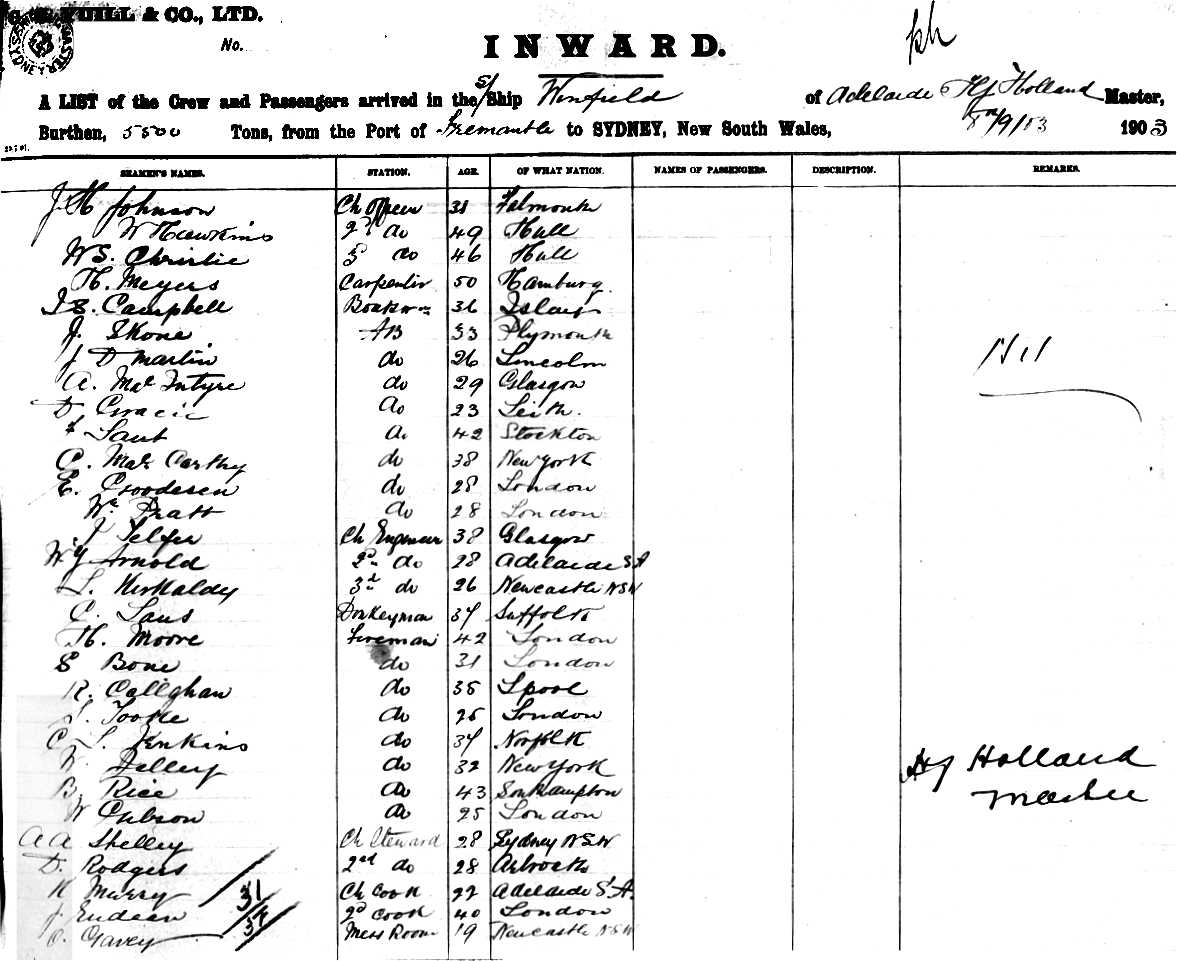 YUILL & CO., LTD.
No.
INWARD.
A LIST of the Crew and Passengers arrived in the S/Ship Winfield of Adelaide HJ Holland Master,
Burthen, 5500 Tons, from the Port of Fremantle to SYDNEY, New South Wales, 8th/9/03 1903
SEAMEN'S NAMES. STATION. AGE. OF WHAT NATION. NAMES OF PASSENGERS. DESCRIPTION. REMARKS.
J. H Johnson Ch Officer 38 Falmouth
W Hawkins 2nd do 49 Hull
W S. Christie 3 do 46 Hull
H. Meyers Carpenter 50 Hamburg
J S. Campbell 36
J. Skone AB 33 Plymouth
J D Martin do 26 Lincoln
A. Mac Intyre do 29 Glasgow
D Gracie do 23 Leith.
Sant do 42 Stockton
C. Mac Carthy do 38 New York
E. Goodesen do 28 London
Wm Pratt do 28 London
J Telfer Ch Engineer 38 Glasgow
W. J Arnold 2nd do 28 Adelaide S A
L. Kirkaldy 3rd do 26 Newcastle NSW
C. Saus Donkeyman 37 Suffolk
H. Moore Fireman 42 London
S Bone do 31 London
R. Callghan do 35 Lpool
Tooke do 25 London
C L. Jenkins do 37 Norfolk
W. Dalley do 32 New York
B. Rice do 43 Southampton
W Gibson do 25 London
A A Shelley Ch Steward 28 Sydney NSW
D. Rodgers 2nd do 28 Arbroath
K Murry Ch Cook 22 Adelaide S A.
J Endean 2d Cook 40 London
Gavey Mess Room 19 Newcastle NSW
31
37
Nil
HJ Holland
Master